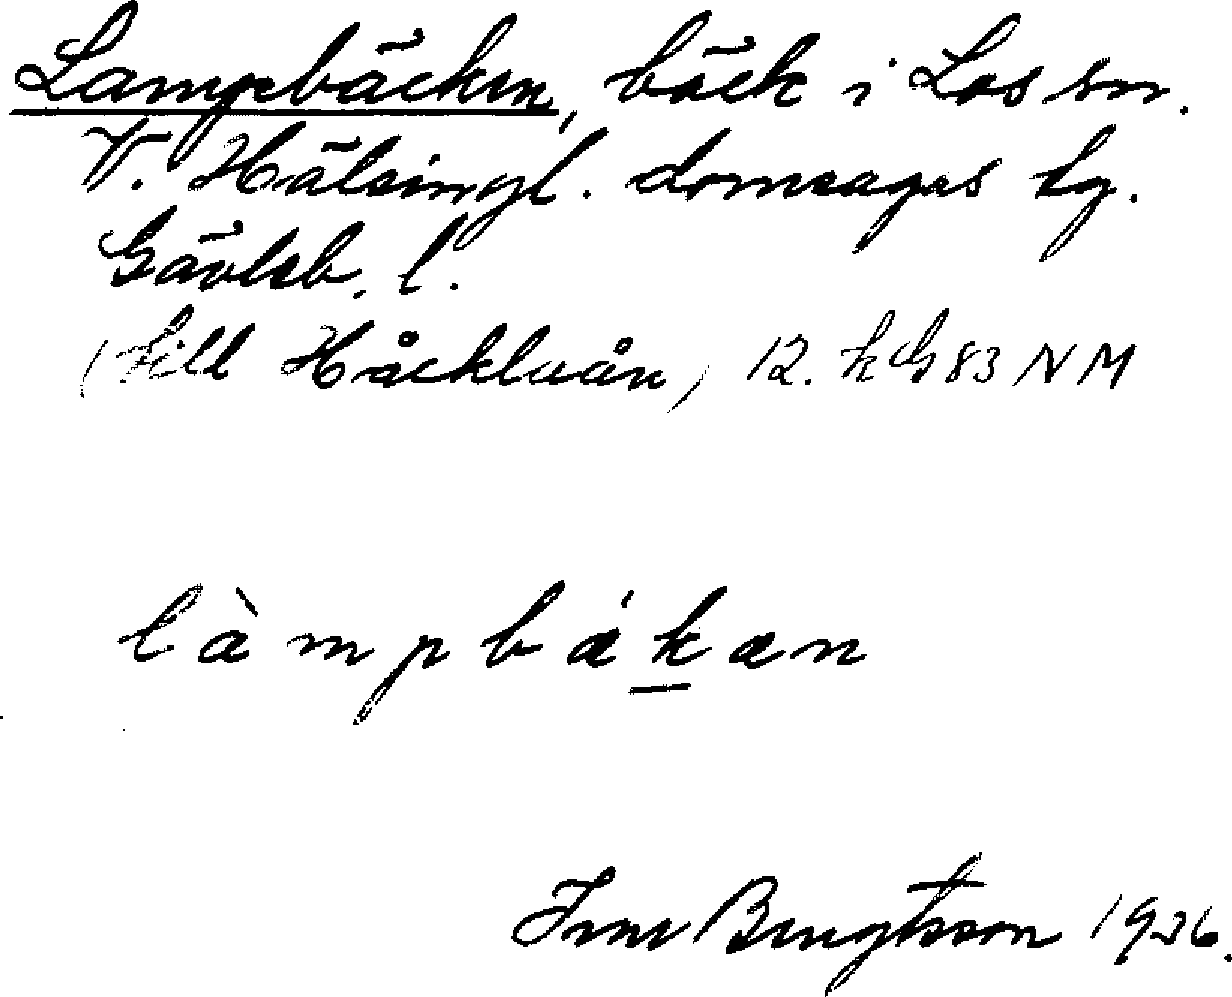 Lampbäcken, bäck i Los sn.
V. Hälsingl. domsagas tg.
Gävleb. l.
(till Håckluån) 12. k G 83 NM
làmpbákan
Bengtsson 1926.